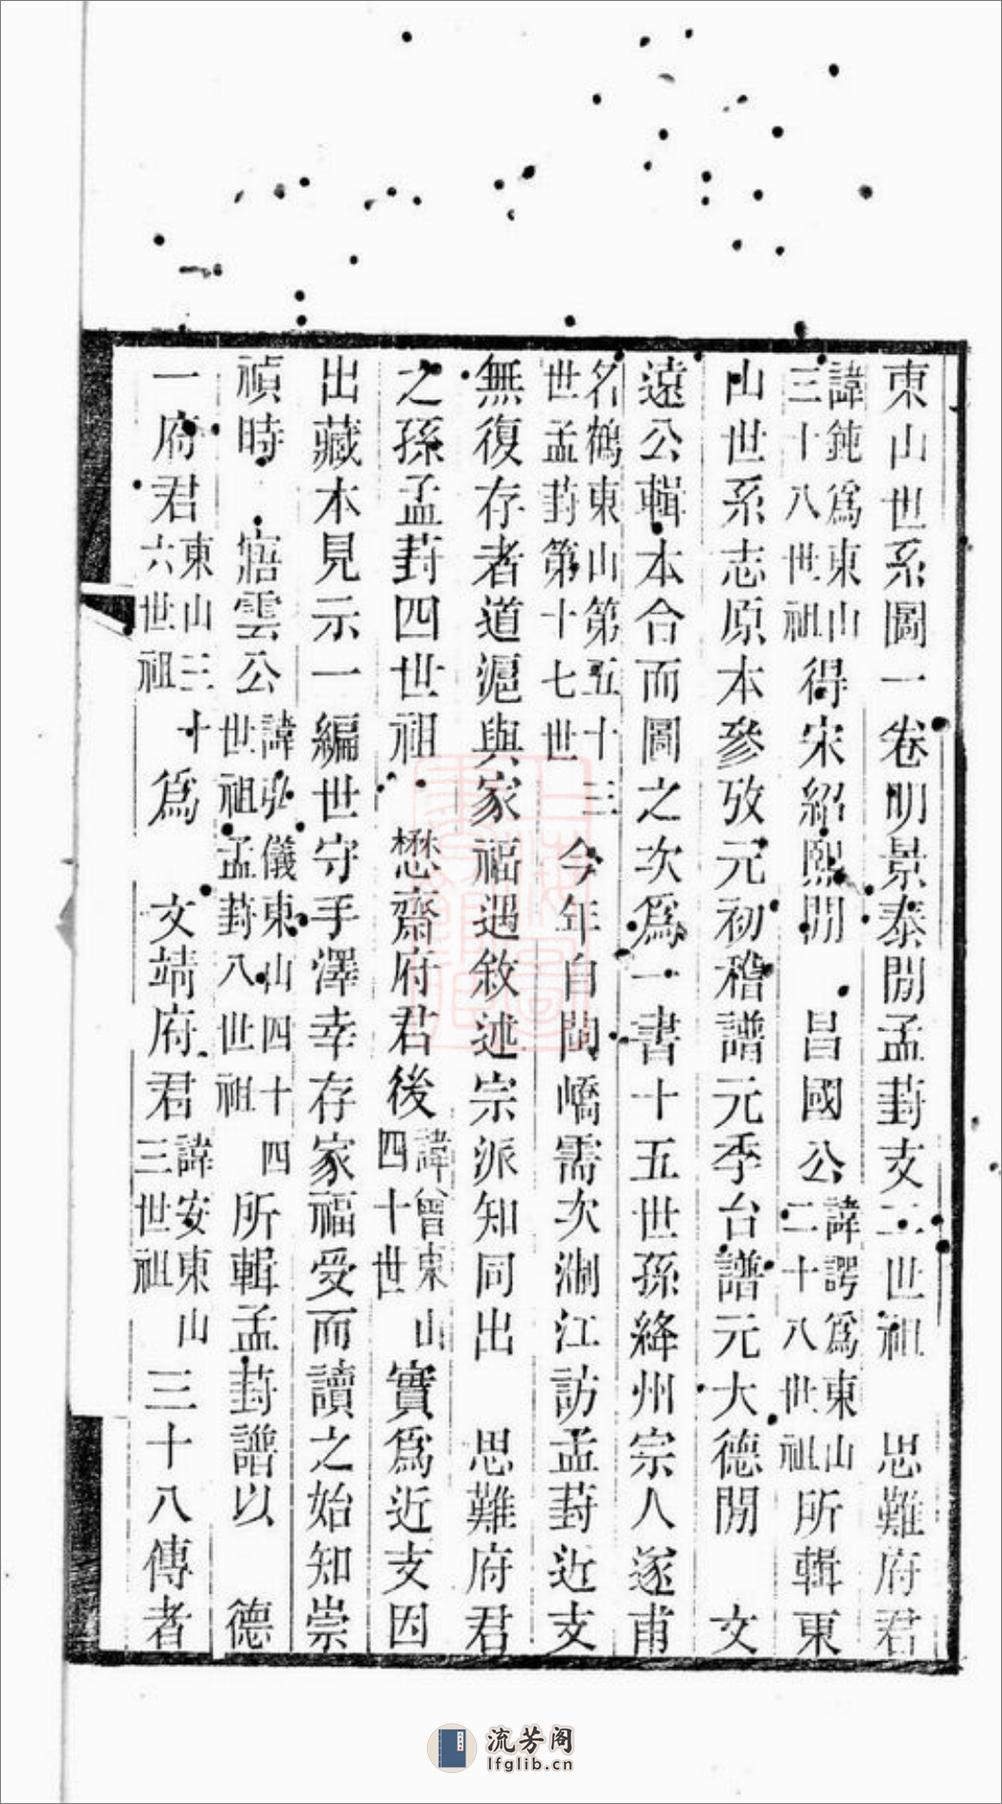 東山世系圖一卷明景泰閒孟葑支二世祖　思難府君
諱鈍爲東山三十八世祖得宋紹熙閒　昌國公諱諤爲東山二十八世祖所輯東
山世系志原本參攷元初稽譜元季台譜元大德閒　文
遠公輯本合而圖之次爲一書十五世孫絳州宗人遂甫
名鶴東山第五十三世孟葑第十七世今年自閩嶠需次淛江訪孟葑近支
無復存者道滬與家福遇敘述宗派知同出　思難府君
之孫孟葑四世祖　懋齋府君後諱曾東山四十世實爲近支因
出藏本見示一編世守手澤幸存家福受而讀之始知崇
禎時　寤雲公諱弘儀東山四十四世祖孟葑八世祖所輯孟葑譜以　德
一府君東山三十六世祖爲　文靖府君諱安東山三世祖三十八傳者
流芳阁
lfglib.cn